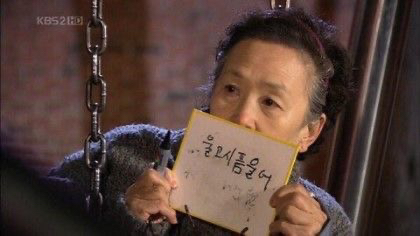 KBS2 HD
울고시픔울어